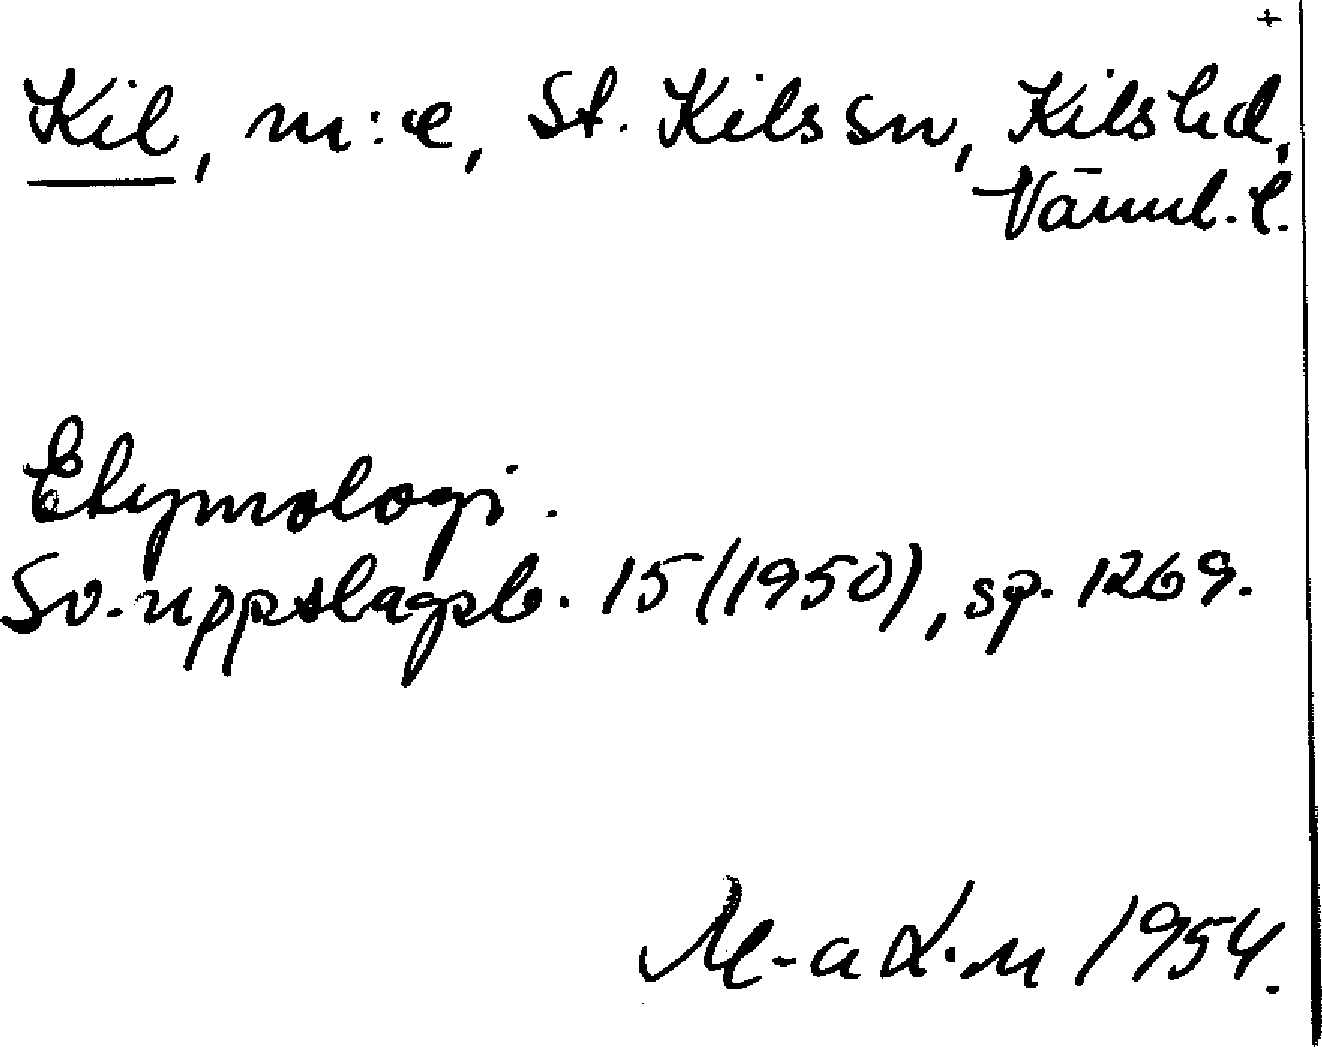 +
Kil, m:e, St. Kils sn, Kils hd,
Värml. l.
Etymologi.
Sv. uppslagsb. 15 (1950), sp. 1269.
1954.